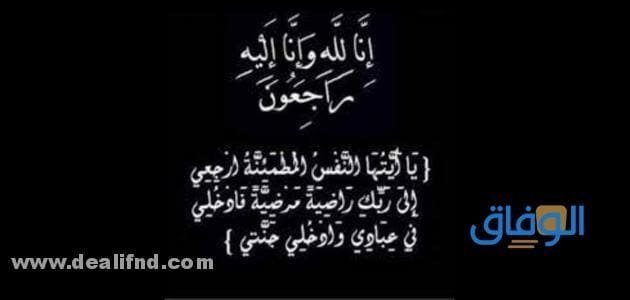 إِنَّا لِلَّهِ وَإِنَّا إِلَيْهِ
رَاجِعُونَ
{ يَا أَيَّتُهَا النَّفْسُ المُطْمَئِنَّةُ ارْجِعِي
إِلَى رَبِّكِ رَاضِيَةً مَرْضِيَّةً فَادْخُلِي
فِي عِبَادِي وَادْخُلِي جَنَّتِي }
الوفاق
www.dealifnd.com